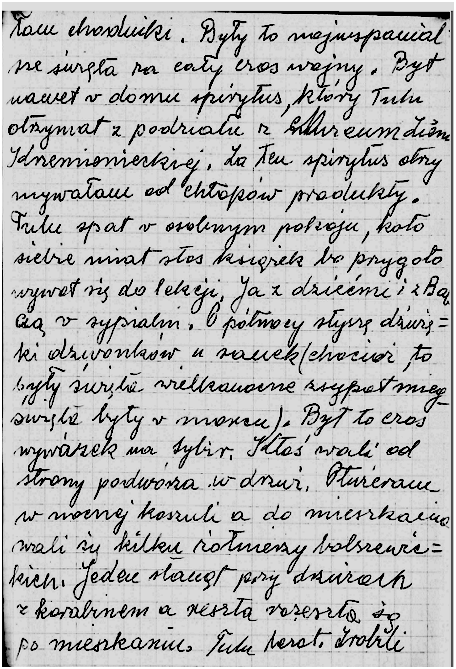 łam chodniki. Były to najwspanial
sze święta za cały czas wojny. Był
nawet w domu spirytus, który Tulu
otrzymał z podziału z Muzeum Ziemi
Krzemienieckiej. Za ten spirytus otrzy
mywałam od chłopów produkty.
Tulu spał w osobnym pokoju, koło
siebie miał stos książek bo przygoto
wywał się do lekcji. Ja z dziećmi i z Bab
cią w sypialni. O północy słyszę dźwię=
ki dzwonków u sanek (chociaż to
były święta wielkanocne zsypał śnieg
święta były w marcu). Był to czas
wywózek na Sybir. Ktoś wali od
strony podwórza w drzwi. Otwieram
w nocnej koszuli a do mieszkania
wali się kilku żołnierzy bolszewic=
kich. Jeden stanął przy drzwiach
z karabinem a reszta rozeszła się
po mieszkaniu. Tulu Zrobili